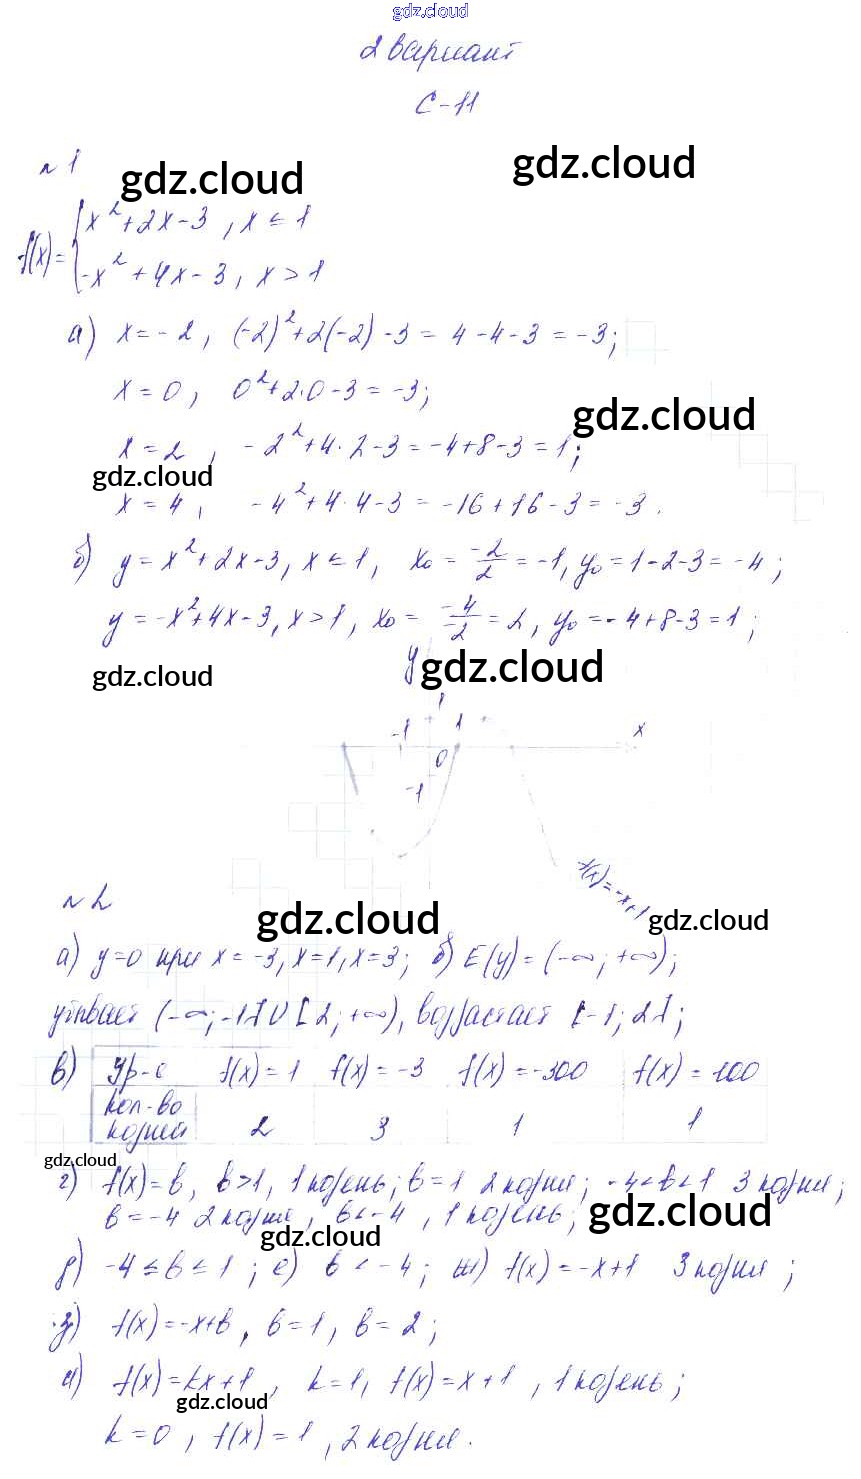 gdz.cloud
2 вариант
С-11
gdz.cloud
gdz.cloud
№1
f(x)= { x²+2x-3, x ≤ 1
-x²+4x-3, x > 1
а) x=-2, (-2)²+2(-2)-3=4-4-3=-3;
x=0, 0²+2·0-3=-3;
gdz.cloud
x=2, -2²+4·2-3=-4+8-3=1;
gdz.cloud
x=4, -4²+4·4-3=-16+16-3=-3.
б) y=x²+2x-3, x≤1, x₀=-2/2=-1, y₀=1-2-3=-4;
y=-x²+4x-3, x>1, x₀=-4/-2=2, y₀=-4+8-3=1;
gdz.cloud
y
gdz.cloud
1
-1 1 x
0
-1
f(x)=-x+1
№2
gdz.cloud
gdz.cloud
а) y=0 при x=-3, x=1, x=3; б) E(y)=(-∞;+∞);
убывает (-∞;-1]U[2;+∞), возрастает [-1;2];
в) Ур-е f(x)=1 f(x)=-3 f(x)=-300 f(x)=100
кол-во
корней 2 3 1 1
gdz.cloud
г) f(x)=в, в>1, 1 корень; в=1 2 корня; -4<в<1 3 корня;
в=-4 2 корня, в<-4, 1 корень;
gdz.cloud
gdz.cloud
д) -4≤в≤1; е) в<-4; ж) f(x)=-x+1 3 корня;
з) f(x)=-x+в, в=1, в=2;
и) f(x)=kx+1, k=1, f(x)=x+1, 1 корень;
gdz.cloud
k=0, f(x)=1, 2 корня.